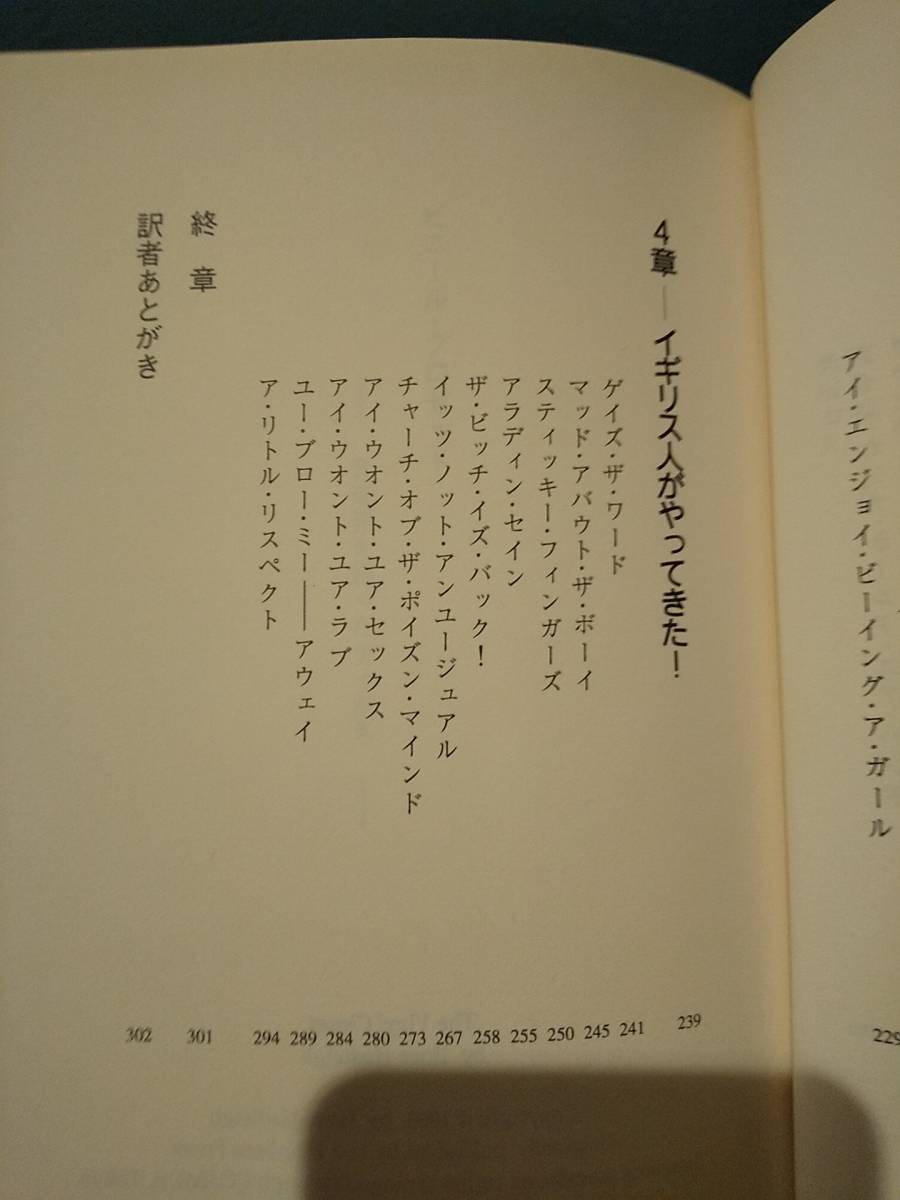 アイ・エンジョイ・ビーイング・ア・ガール
229
4章──イギリス人がやってきた!
239
ゲイズ・ザ・ワード
241
マッド・アバウト・ザ・ボーイ
245
スティッキー・フィンガーズ
250
アラディン・セイン
255
ザ・ビッチ・イズ・バック!
258
イッツ・ノット・アンユージュアル
267
チャーチ・オブ・ザ・ポイズン・マインド
273
アイ・ウオント・ユア・セックス
280
アイ・ウオント・ユア・ラブ
284
ユー・ブロー・ミー──アウェイ
289
ア・リトル・リスペクト
294
終章
301
訳者あとがき
302